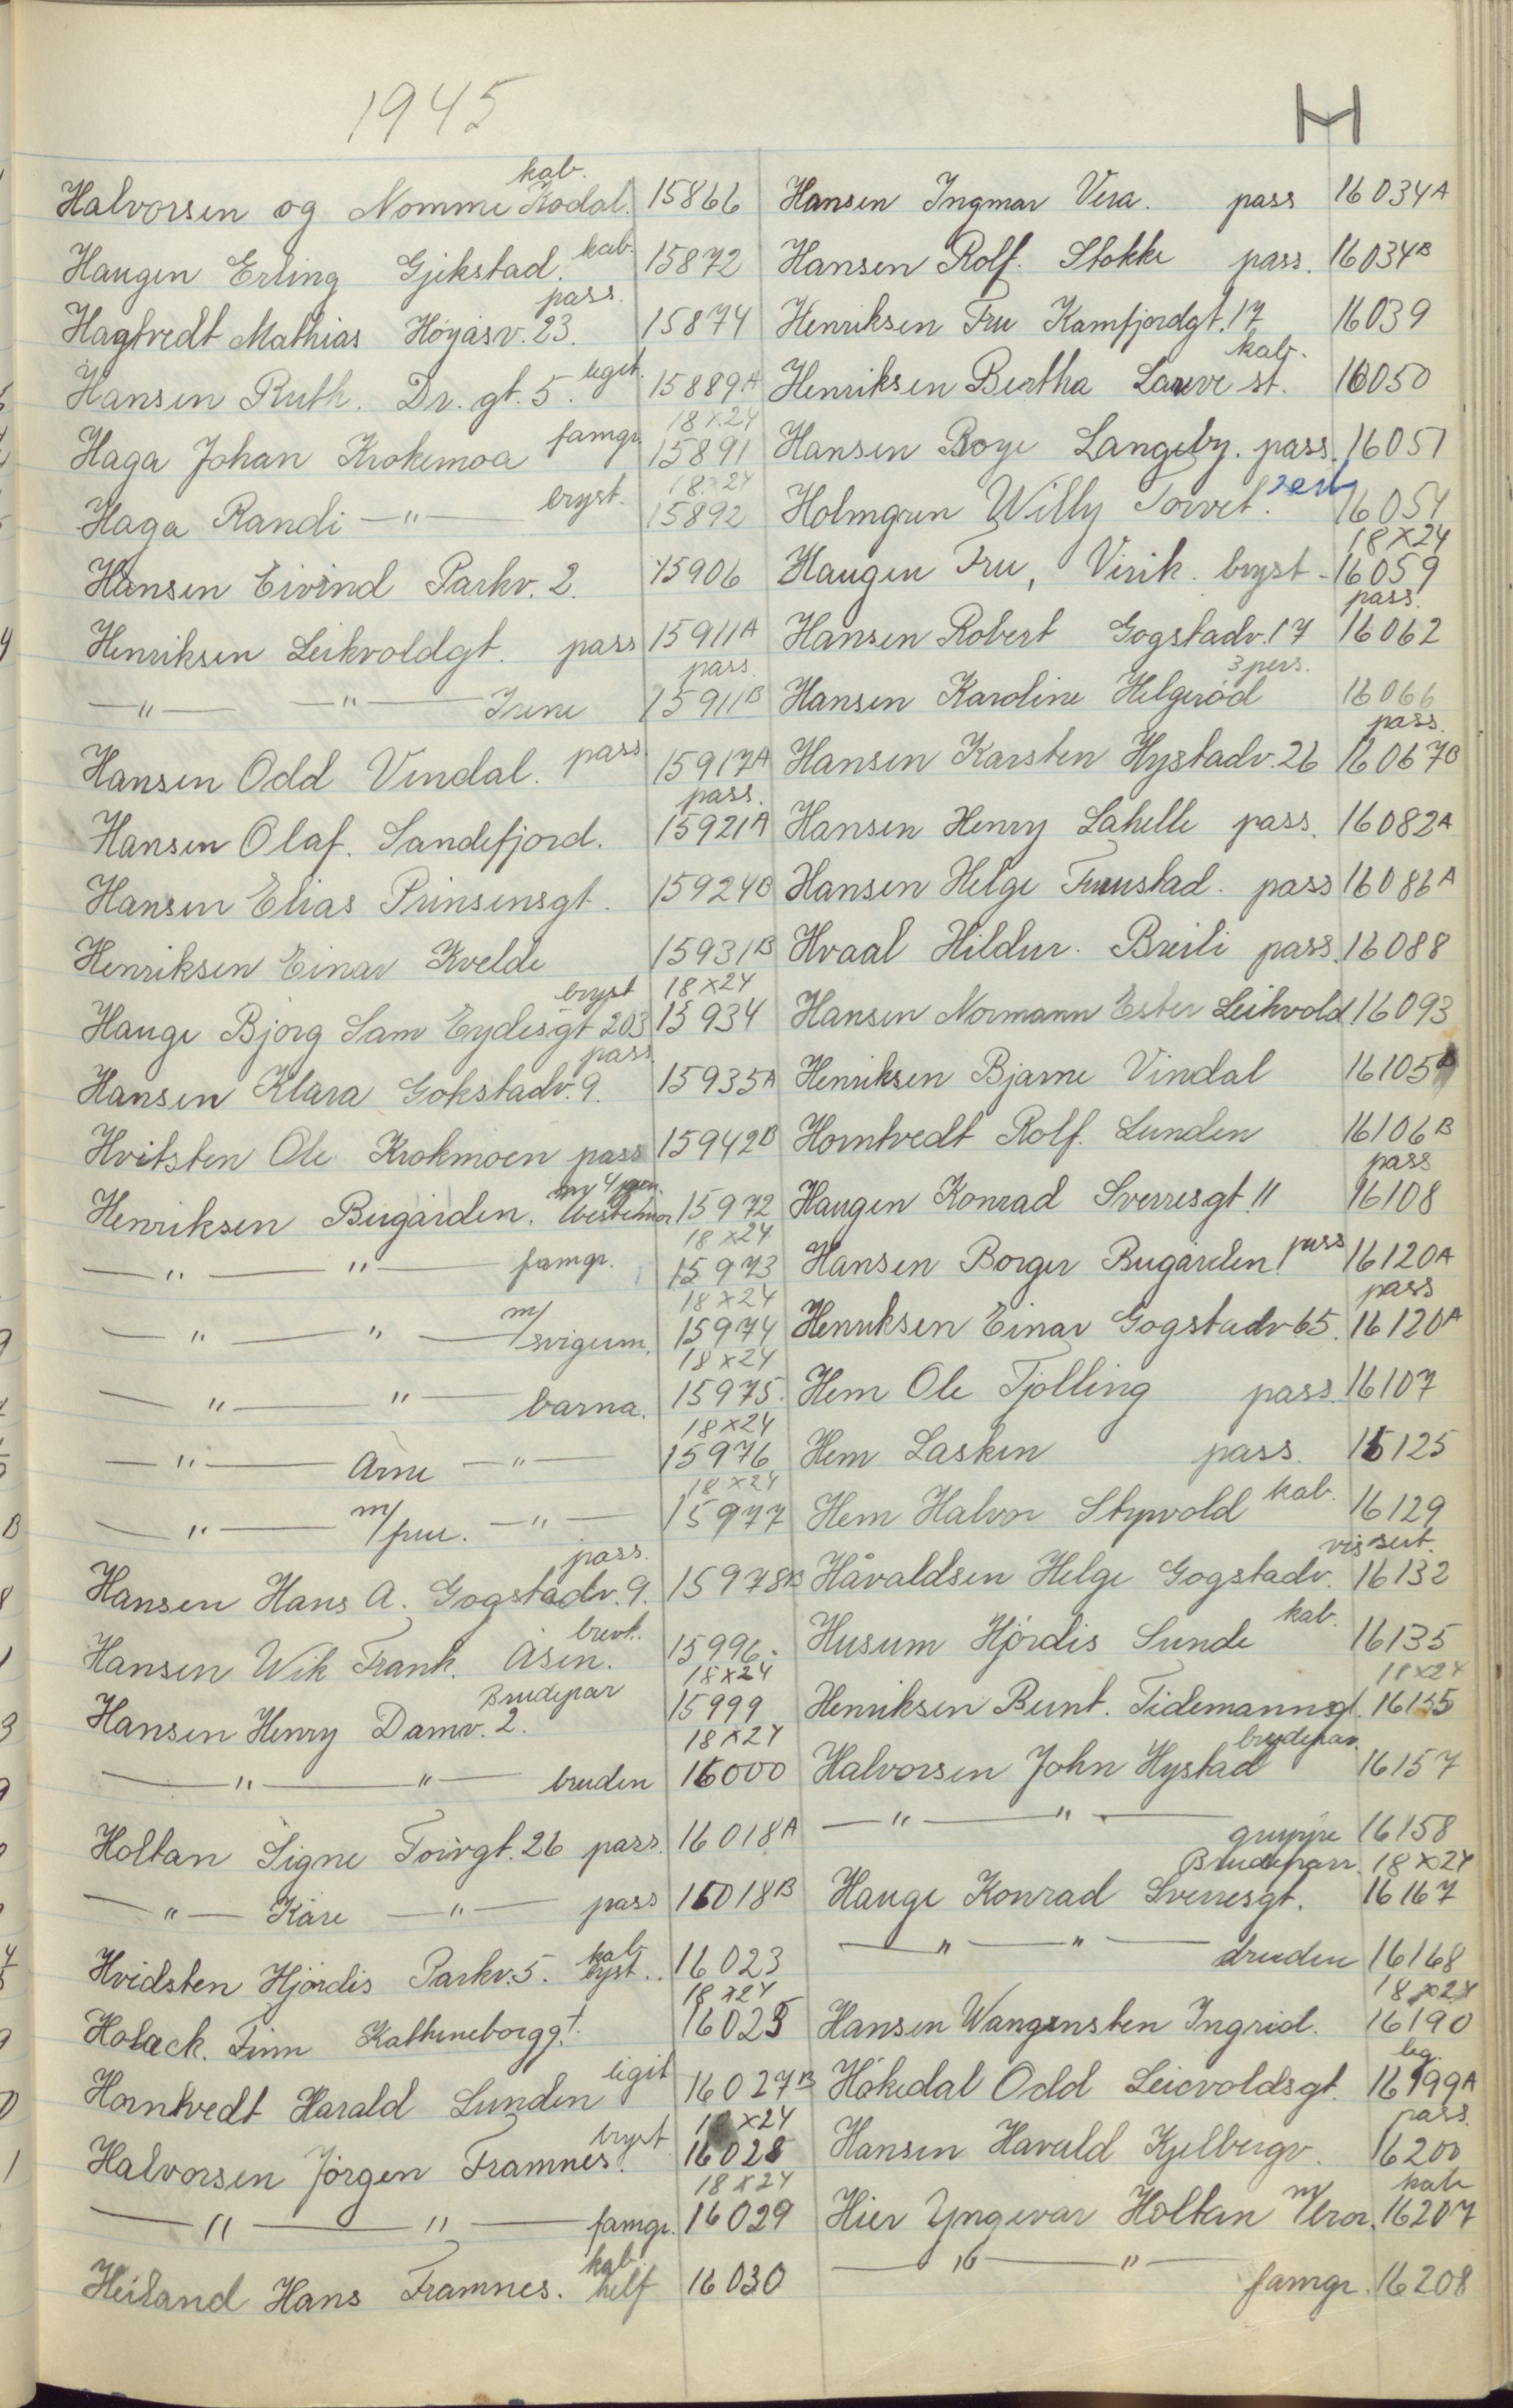 1945
H
kab.
Halvorsen og Nomme Kodal. 15866
Haugen Erling Gjekstad. kab. 15872
pass.
Hagtvedt Mathias Høyåsv. 23. 15874
Hansen Ruth. Dr. gt. 5. legit. 15889A
18x24
Haga Johan Krokemoa famgr. 15891
18x24
Haga Randi —"— bryst. 15892
Hansen Eivind Parkv. 2. 15906
Henriksen Leikvoldgt. pass 15911A
pass
—"— —"— Irene 15911B
Hansen Odd Vindal. pass 15917A
pass.
Hansen Olaf. Sandefjord. 15921A
Hansen Elias Prinsensgt. 15924B
Henriksen Einar Kvelde 15931B
bryst 18x24
Hauge Bjørg Sam Eydesgt 203 15934
pass.
Hansen Klara Gokstadv. 9. 15935A
Hvitsten Ole Krokmoen pass 15942B
Henriksen Bugården. 15972
18x24
—"— "— famgr. 15973
18x24
—"— "— m/ svigerm. 15974
18x24
—"— "— barna. 15975.
18x24
—"— Arne —"— 15976
18x24
—"— m/ fru. —"— 15977
pass.
Hansen Hans A. Gogstadv. 9. 15978B
brevk.
Hansen Wik Frank. Åsen. 15996.
Brudepar 18x24
Hansen Henry Damv. 2. 15999
18x24
—"— "— bruden 16000
Holtan Signe Torvgt. 26 pass. 16018A
—"— Kåre —"— pass 16018B
kab.
Hvidsten Hjørdis Parkv. 5. bryst. 16023
18x24
Holack. Finn 16025
Horntvedt Harald Lunden legit 16027B
bryst 18x24
Halvorsen Jörgen Framnes. 16028
18x24
—"— "— famgr. 16029
kab.
Heiland Hans Framnes. helf 16030
Hansen Ingmar Vera. pass 16034A
Hansen Rolf. Stokke pass. 16034B
Henriksen Fru Kamfjordgt. 17 16039
kab.
Henriksen Bertha Lauve st. 16050
Hansen Boye Langeby. pass. 16051
Holmgren Willy Torvet. 16054
18x24
Haugen Fru, Virik. bryst - 16059
pass.
Hansen Robert Gogstadv. 17 16062
3 pers.
Hansen Karoline Helgerød 16066
pass.
Hansen Karsten Hystadv. 26 16067B
Hansen Henry Lahelle pass. 16082A
Hansen Helge Furustad. pass 16086A
Hvaal Hildur. Breili pass. 16088
Hansen Normann Ester Leikvold 16093
Henriksen Bjarne Vindal 16105
Horntvedt Rolf. Lunden 16106B
pass
Haugen Konrad Sverresgt. 11 16108
Hansen Borger Bugården. pass 16120A
pass
Henriksen Einar Gogstadv 65. 16120A
Hem Ole Tjølling pass. 16107
Hem Lasken pass. 16125
Hem Halvor Styrvold kab. 16129
vis sert.
Håvaldsen Helge Gogstadv. 16132
Husum Hjördis Sunde kab. 16135
18x24
Henriksen Bernt. Tidemannsgt. 16135
brudepar
Halvorsen John Hystad 16157
—"— "— gruppe 16158
Brudeparr. 18x24
Hauge Konrad Sverresgt. 16167
—"— "— bruden 16168
18x24
Hansen Wangensten Ingrid. 16190
leg.
Håkedal Odd Leicvoldsgt. 16199A
pass.
Hansen Harald Kjelbergv. 16200
kab
Hier Yngevar Holtan m/ bror. 16207
—"— "— famgr. 16208